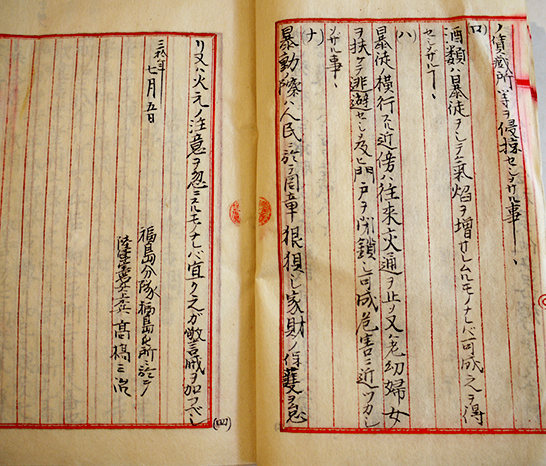 ノ貨蔵所ホヲ侵掠セシメサル事
ロ)
酒類ハ暴徒ヲシテ気焔ヲ増サシムルモノナレバ可成之ヲ得
セシメサル事
ハ)
暴徒横行スル近傍ハ往来交通ヲ止メ又老幼婦女
ヲ扶ケテ逃避セシメ及ヒ門戸ヲ閉鎖シ可成危害ニ近ツカシ
メサル事
ナ)
暴動ノ際ハ人民ニ於テ周章狼狽シ家財ノ保護ヲ怠
リ又ハ火元ノ注意ヲ忽ニスルモノナレバ宜ク之が警戒ヲ加フベシ
三拾年
七月五日
福島分隊福島屯所ニ於テ
陸軍憲兵上 高橋三治